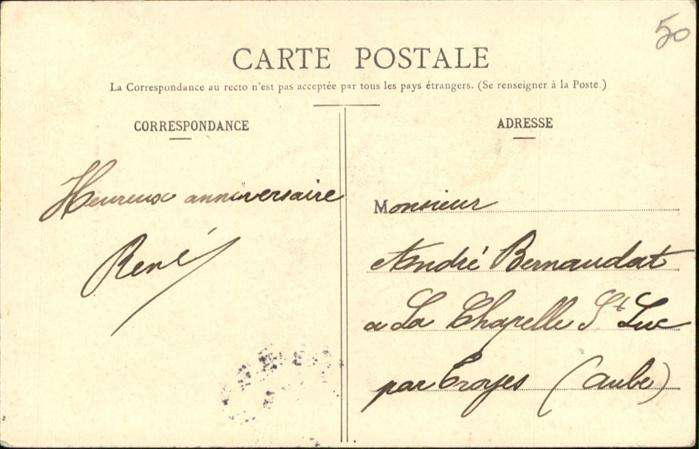 50
CARTE POSTALE
La Correspondance au recto n'est pas acceptée par tous les pays étrangers. (Se renseigner à la Poste.)
CORRESPONDANCE
Heureux anniversaire
René
ADRESSE
Monsieur
André Bernaudat
a La Chapelle St Luc
par Troyes (Aube)